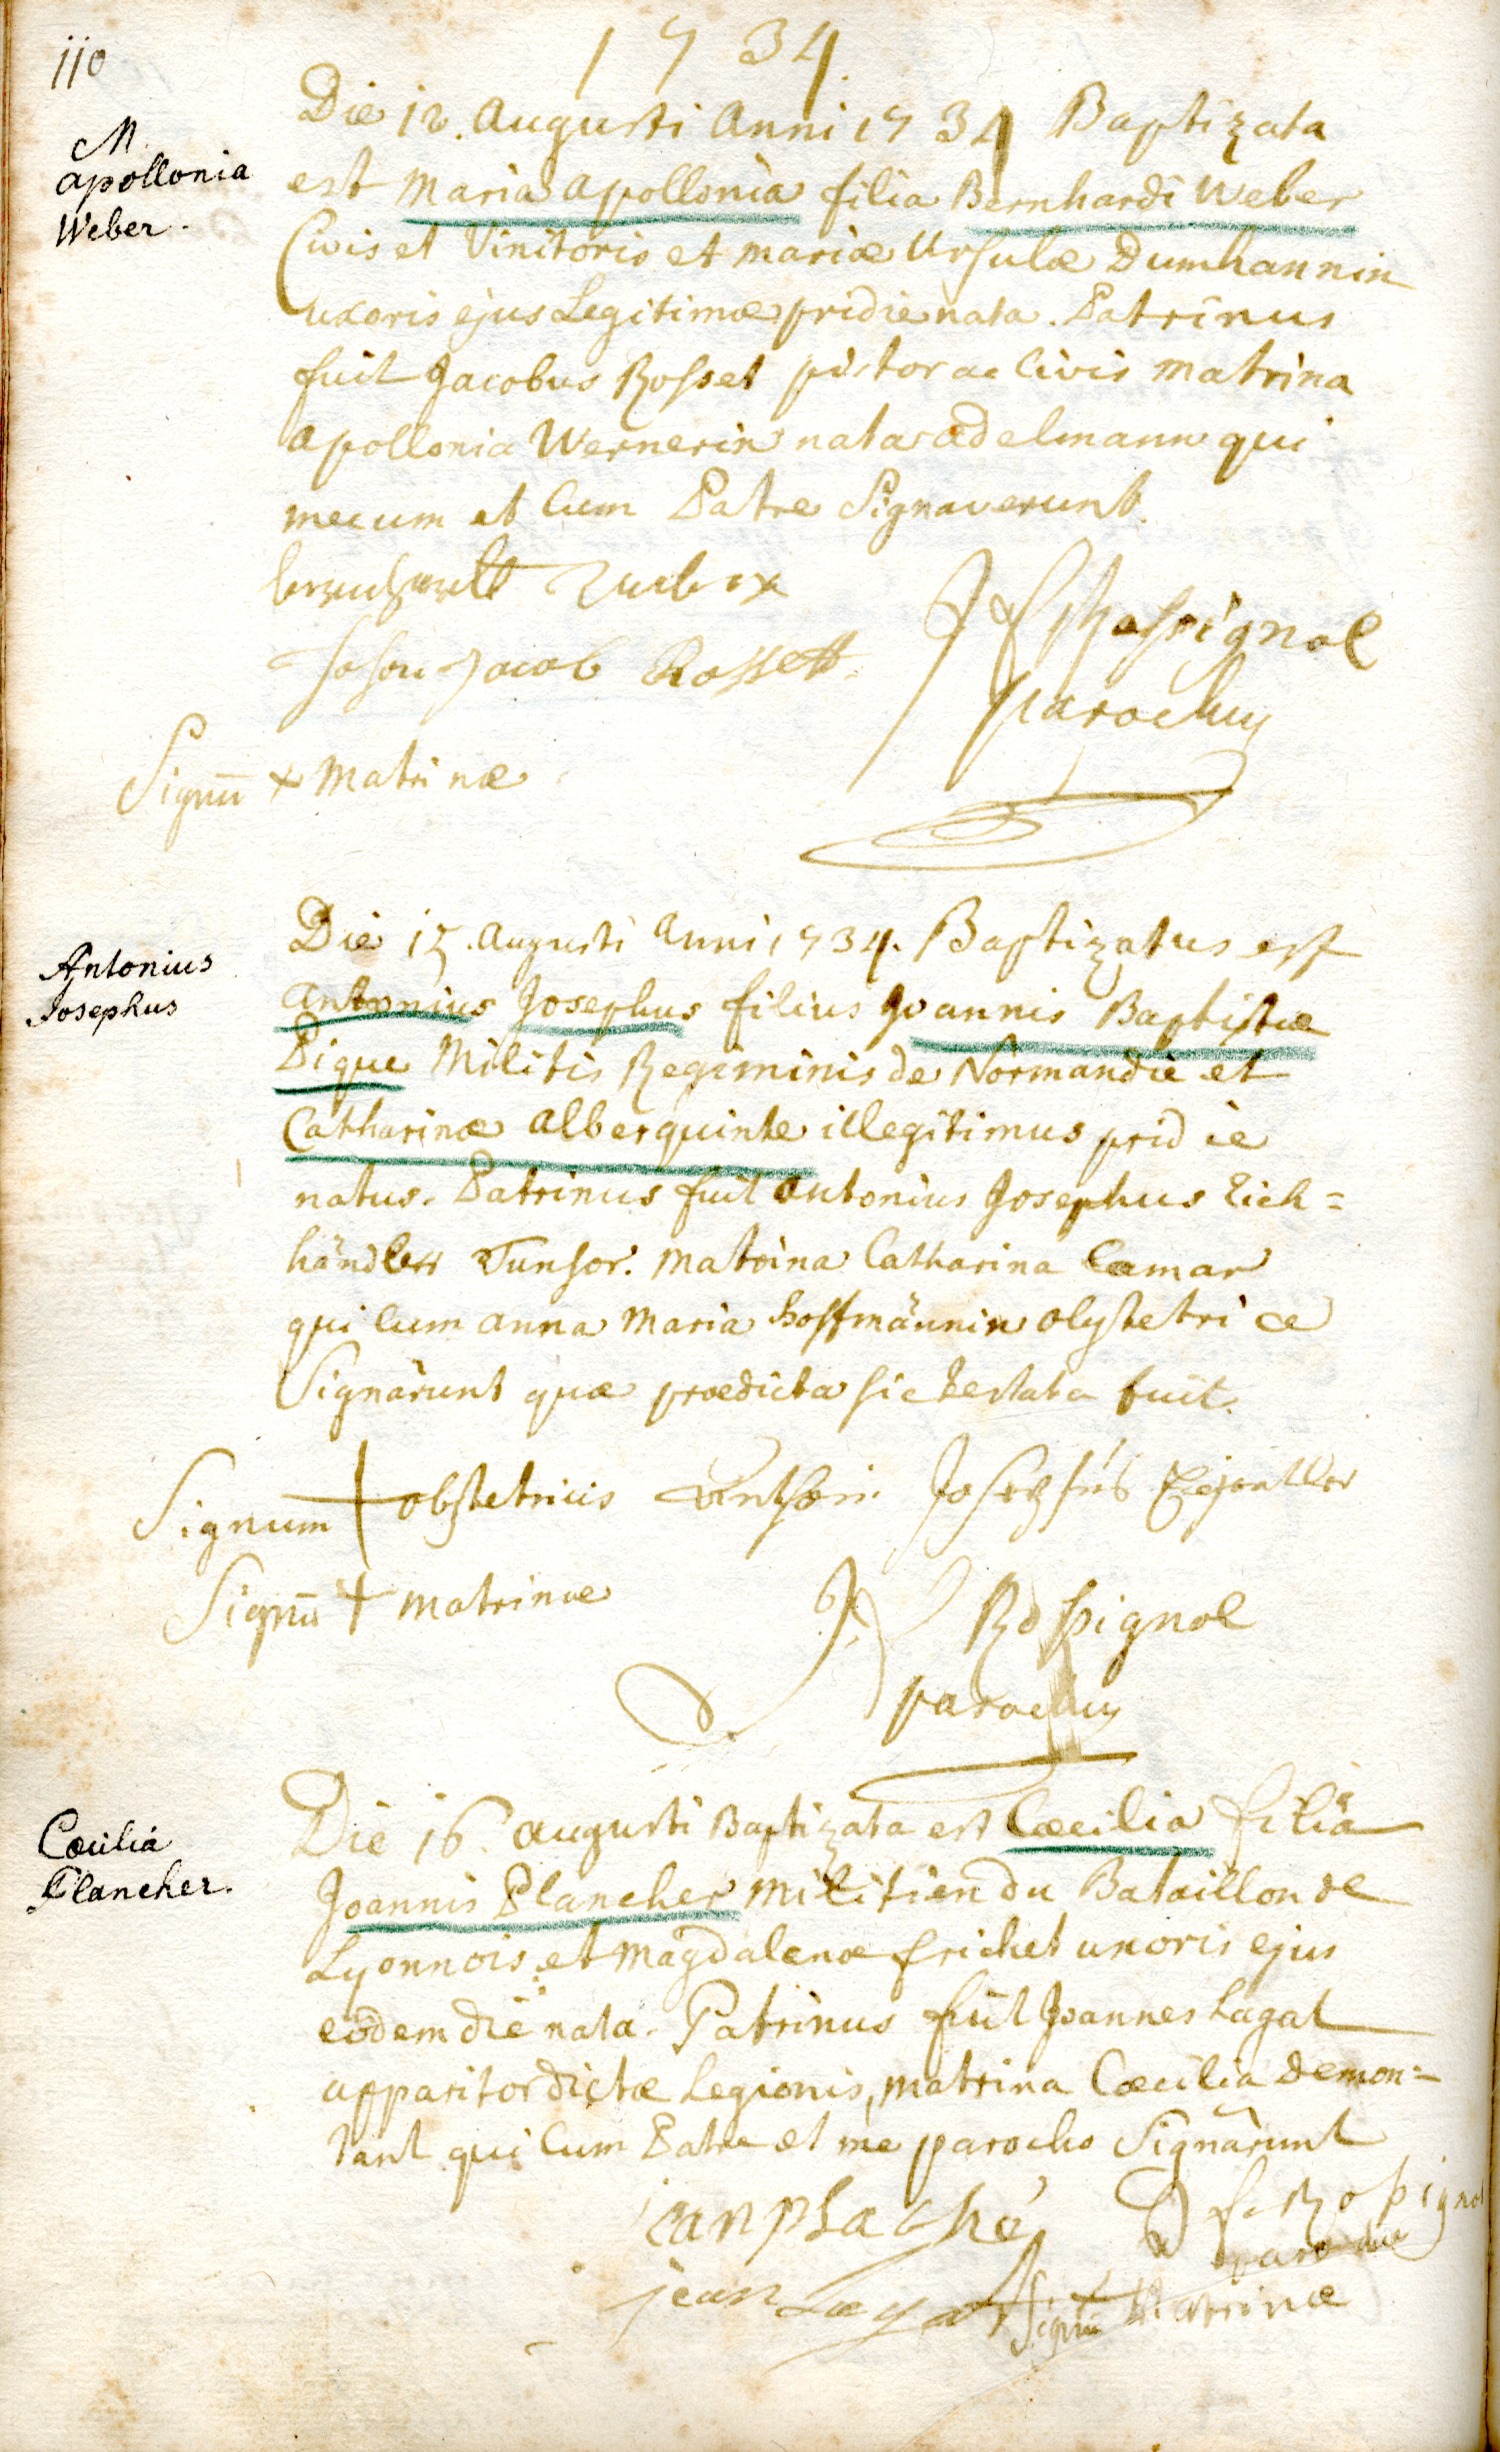 110
1734.
M.
apollonia
Weber.
Die 12. Augusti Anni 1734 Baptizata
est Maria apollonia filia Bernhardi Weber
Civis et Vinitoris et mariæ Ursulæ Dumhannin
uxoris ejus Legitimæ pridie nata. Patrinus
fuit Jacobus Rosset pistor ac Civis matrina
apollonia Wernerin nata adelmann qui
mecum et Cum Patre Signaverunt.
Jacob Rossett
J f Rossignol
parochus
Signū + Matrinæ
Antonius
Josephus
Die 15. Augusti Anni 1734. Baptizatus est
Antonius Josephus filius Joannis Baptistæ
Pique Militis Regiminis de Normandie et
Catharinæ alberquinte illegitimus pridie
natus. Patrinus fuit Antonius Josephus Eich=
händler Tunsor. Matrina Catharina Camar
qui Cum anna Maria hoffmännin obstetrice
Signârunt quæ prædicta sic testata fuit.
Signum + obstetricis
Signū + matrinæ
Rossignol
parochus
Cæcilia
Plancher.
Die 16. augusti Baptizata est Cæcilia filia
Joannis Plancher militien du Bataillon de
Lyonnois et Magdalenæ frichet uxoris ejus
eodem die nata. Patrinus fuit Joannes Lagat
apparitor dictæ Legionis, matrina Cæcilia demon=
tant qui Cum Patre et me parocho Signârunt
jean plaché
f. Rossignol
parochus
jean Lagat
Signū + Matrinæ